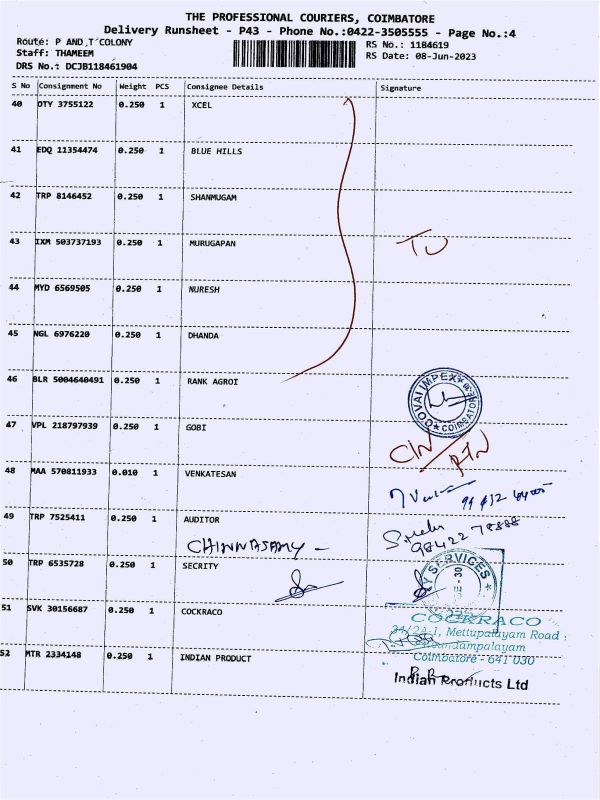 THE PROFESSIONAL COURIERS, COIMBATORE
Delivery Runsheet - P43 - Phone No.:0422-3505555 - Page No.:4
Route: P AND T COLONY RS No.: 1184619
Staff: THAMEEM RS Date: 08-Jun-2023
DRS No.: DCJB118461904
S No Consignment No Weight PCS Consignee Details Signature
40 OTY 3755122 0.250 1 XCEL
41 EDQ 11354474 0.250 1 BLUE HILLS
42 TRP 8146452 0.250 1 SHANMUGAM
43 IXM 503737193 0.250 1 MURUGAPAN
44 MYD 6569505 0.250 1 NURESH
45 NGL 6976220 0.250 1 DHANDA
46 BLR 5004640491 0.250 1 RANK AGROI
COVAI IMPEX COIMBATORE
47 VPL 218797939 0.250 1 GOBI
48 MAA 570811933 0.010 1 VENKATESAN
49 TRP 7525411 0.250 1 AUDITOR
CHINNASAMY - 98422 78888
50 TRP 6535728 0.250 1 SECRITY
SERVICES
51 SVK 30156687 0.250 1 COCKRACO
COCKRACO
Mettupalayam Road
Coimbatore - 641 030
52 MTR 2334148 0.250 1 INDIAN PRODUCT
Indian Products Ltd